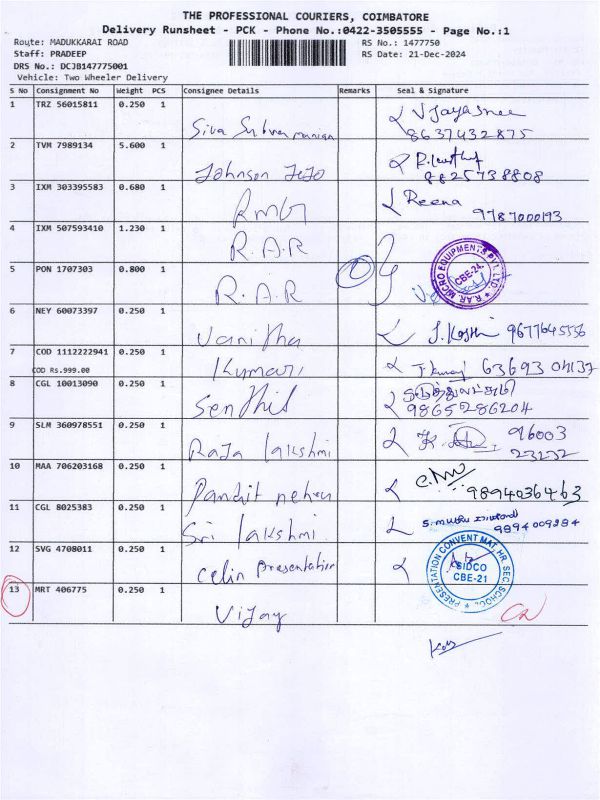 THE PROFESSIONAL COURIERS, COIMBATORE
Delivery Runsheet - PCK - Phone No.:0422-3505555 - Page No.:1
Route: MADUKKARAI ROAD RS No.: 1477750
Staff: PRADEEP RS Date: 21-Dec-2024
DRS No.: DCJB147775001
Vehicle: Two Wheeler Delivery
S No Consignment No Weight PCS Consignee Details Remarks Seal & Signature
1 TRZ 56015811 0.250 1 Siva Subramanian Vijayasree
8637432875
2 TVM 7989134 5.600 1 Johnson JoJo
9825738808
3 IXM 303395583 0.680 1 RMG Reena
9787000193
4 IXM 507593410 1.230 1 R.A.R
R.AR. MICRO EQUIPMENTS PVT. LTD. CBE-24.
5 PON 1707303 0.800 1 R.A.R
6 NEY 60073397 0.250 1 Vanitha 9677645556
7 COD 1112222941 0.250 1 Kumari 63693 04137
COD Rs.999.00
8 CGL 10013090 0.250 1 Senthil
9865286204
9 SLM 360978551 0.250 1 Raja lakshmi 96003
23232
10 MAA 706203168 0.250 1 Pandit nehru
9894036463
11 CGL 8025383 0.250 1 Sri lakshmi
9894009284
12 SVG 4708011 0.250 1 Celin Presentation
PRESENTATION CONVENT MAT. HR. SEC. SCHOOL SIDCO CBE-21
13 MRT 406775 0.250 1 Vijay